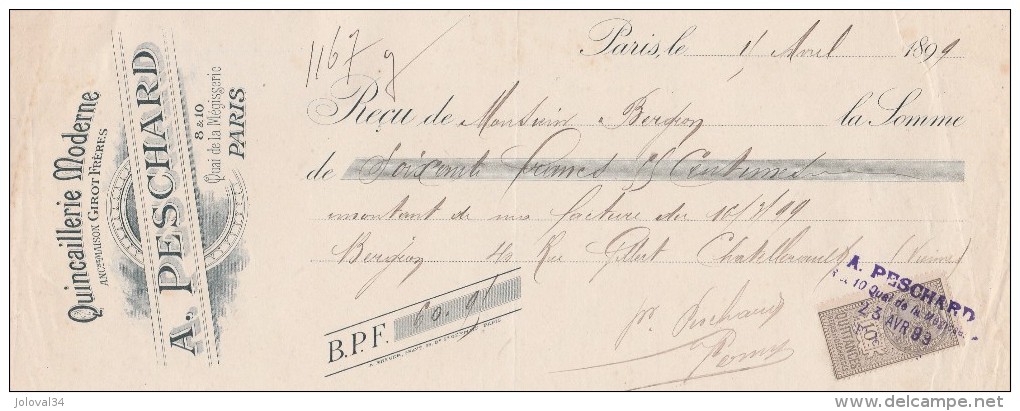 Quincaillerie Moderne
ANCNE MAISON GIROT FRÈRES
A. PESCHARD
8 & 10
Quai de la Mégisserie
PARIS
1167
Paris, le Avril 1899
Reçu de Monsieur Bergeon la Somme
de Soixante francs Centimes
montant de ma facture du 10/3/99
Bergeon Rue Gilbert Chatellerault (Vienne)
B.P.F. 60.95
pr Peschard
A. PESCHARD
8 et 10 Quai de la Mégisserie
23 AVR 99
QUITTANCES
10c
http://joloval34
delcampe.net